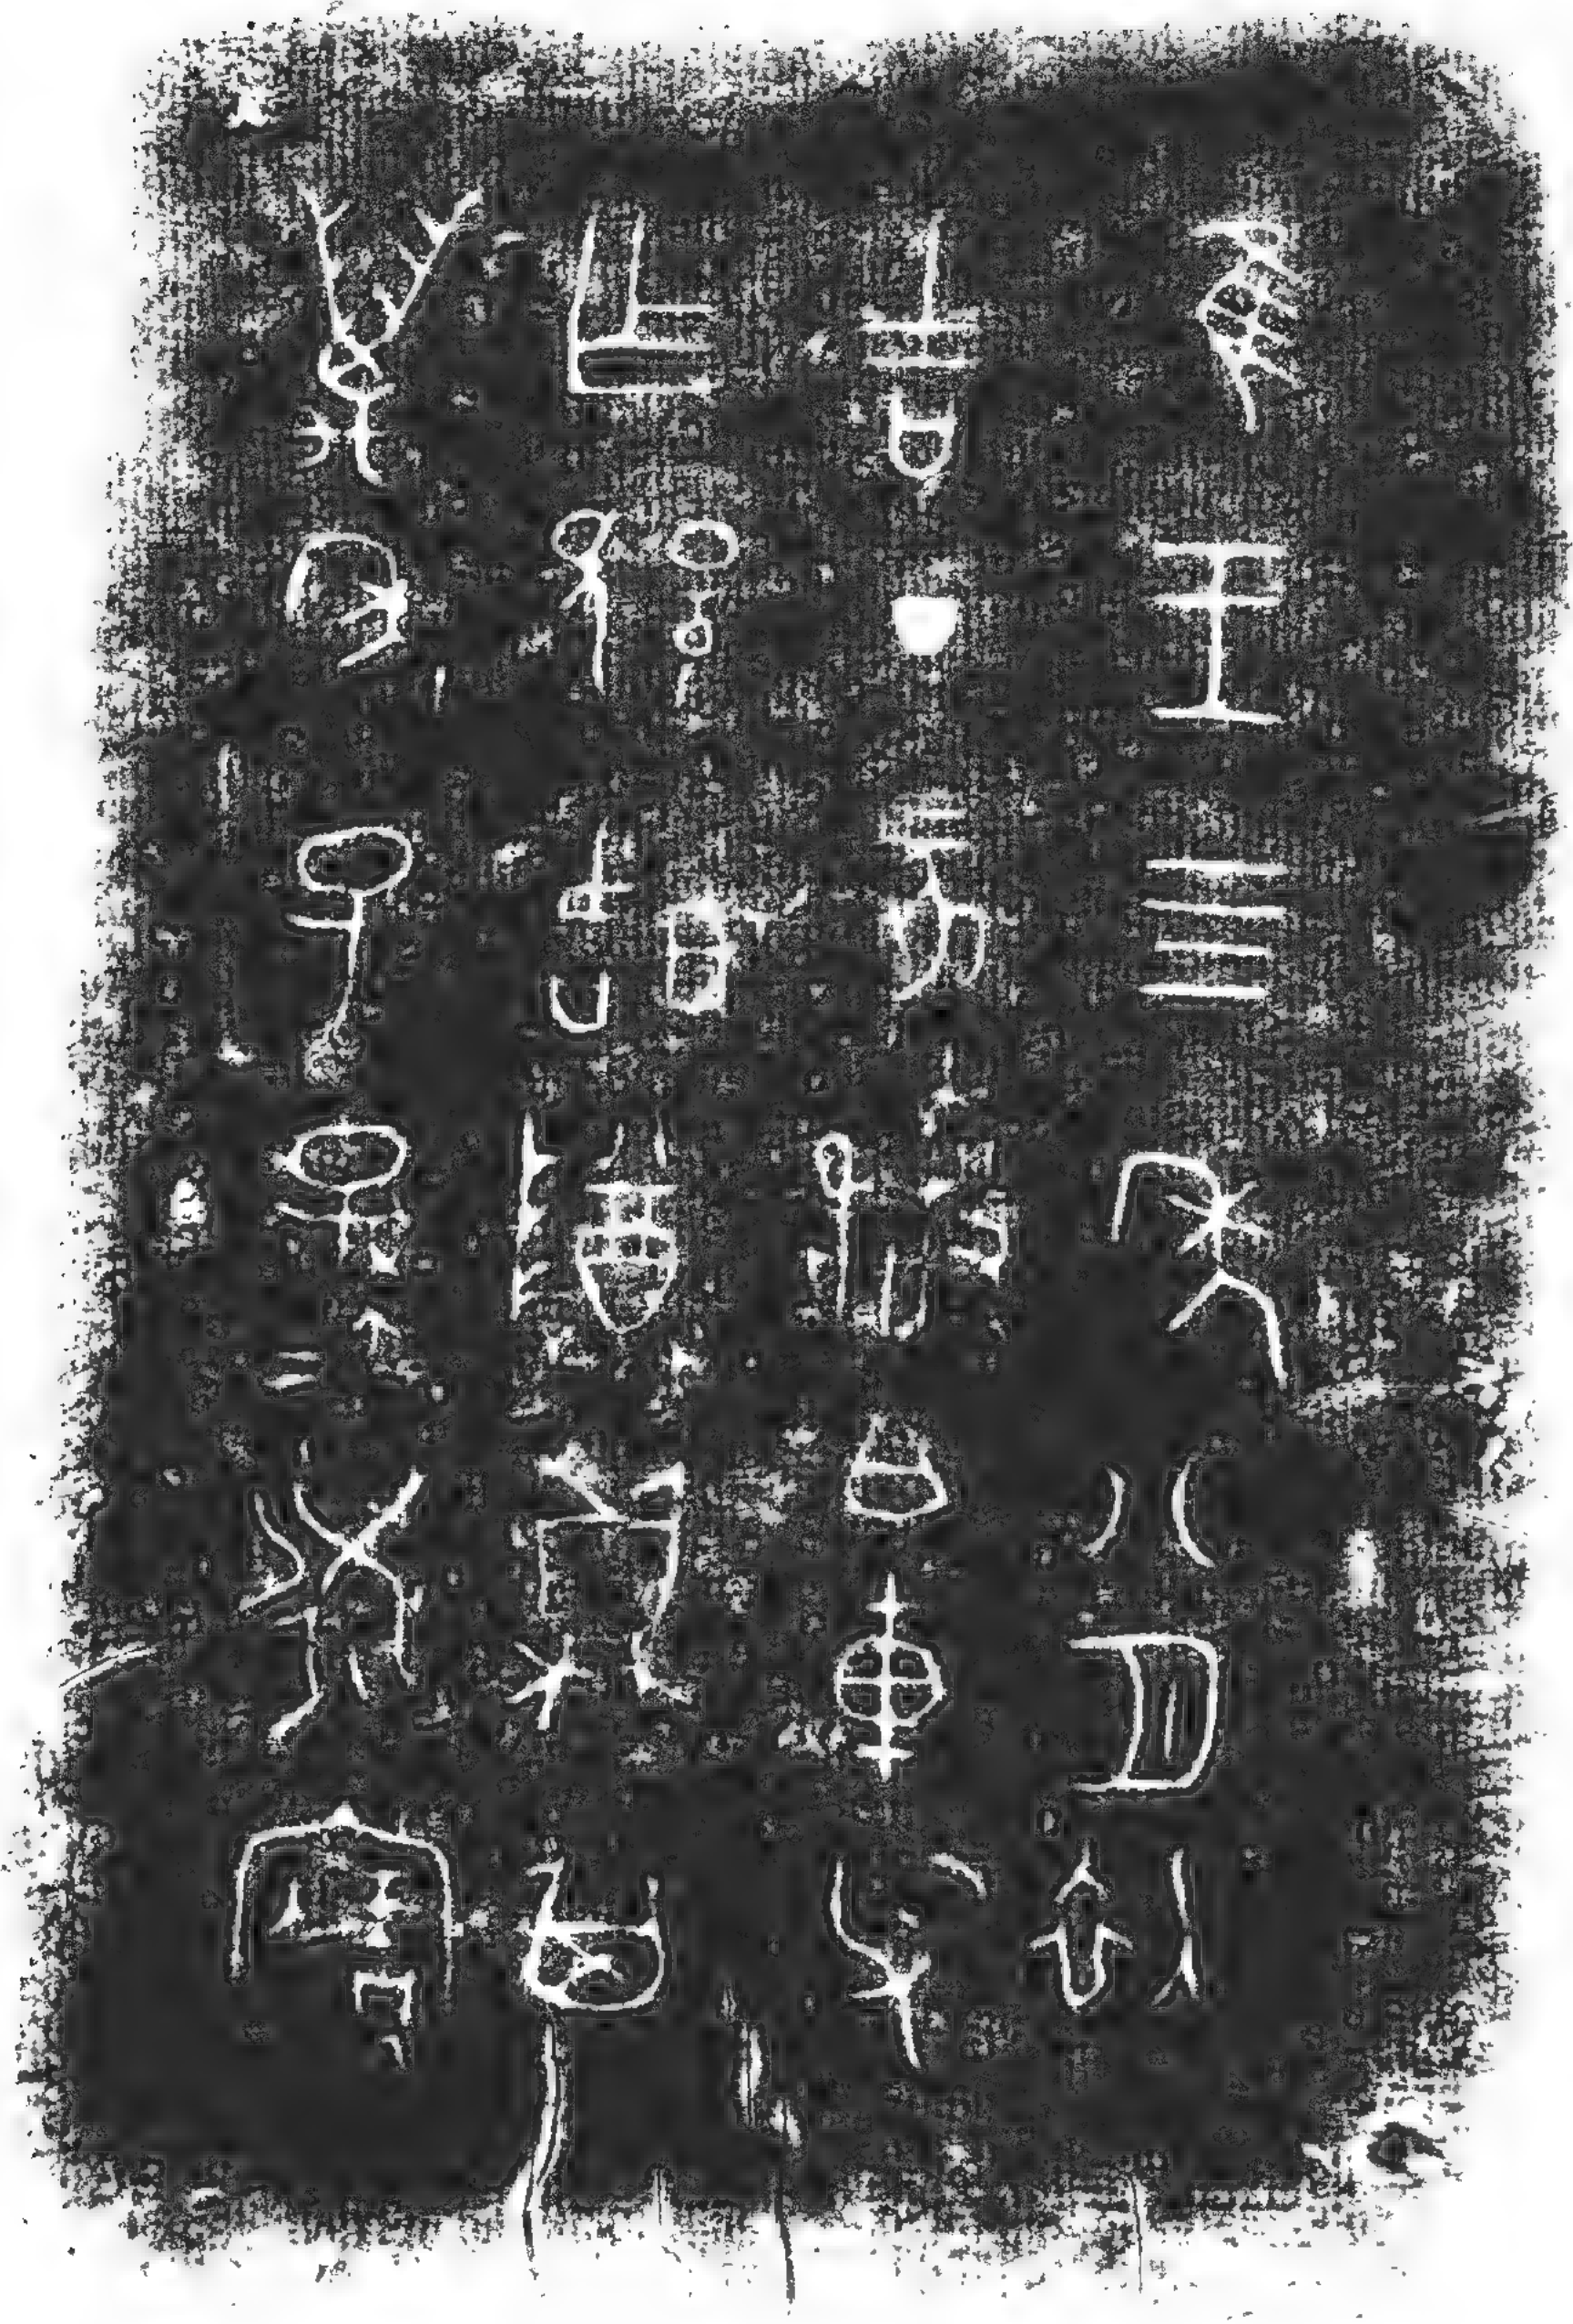 隹王四年八月初
吉丁亥散白車父
乍𨛫姞尊鼎其
萬年子孫=永寶